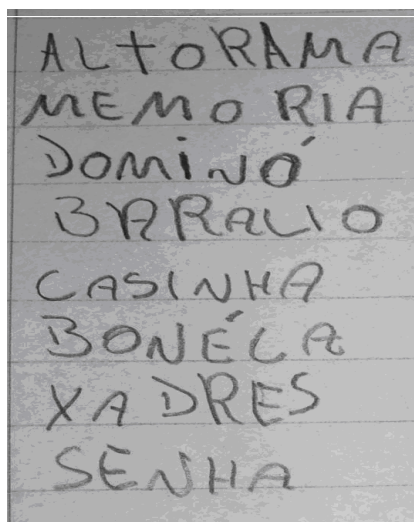 ALTORAMA
MEMORIA
DOMINÓ
BARALIO
CASINHA
BONÉCA
XADRES
SENHA